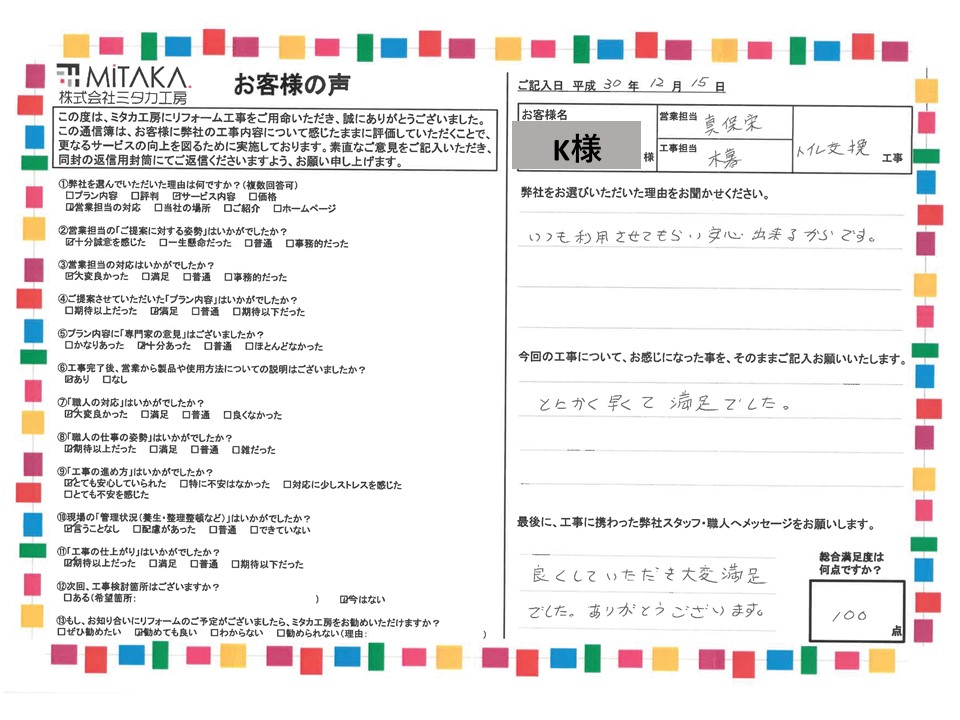 MiTAKA
株式会社ミタカ工房
お客様の声
この度は、ミタカ工房にリフォーム工事をご用命いただき、誠にありがとうございました。
この通信簿は、お客様に弊社の工事内容について感じたままに評価していただくことで、
更なるサービスの向上を図るために実施しております。素直なご意見をご記入いただき、
同封の返信用封筒にてご返信くださいますよう、お願い申し上げます。
①弊社を選んでいただいた理由は何ですか？(複数回答可)
□プラン内容 □評判 ☑サービス内容 □価格
☑営業担当の対応 □当社の場所 □ご紹介 □ホームページ
②営業担当の「ご提案に対する姿勢」はいかがでしたか？
☑十分誠意を感じた □一生懸命だった □普通 □事務的だった
③営業担当の対応はいかがでしたか？
☑大変良かった □満足 □普通 □事務的だった
④ご提案させていただいた「プラン内容」はいかがでしたか？
□期待以上だった ☑満足 □普通 □期待以下だった
⑤プラン内容に「専門家の意見」はございましたか？
□かなりあった ☑十分あった □普通 □ほとんどなかった
⑥工事完了後、営業から製品や使用方法についての説明はございましたか？
☑あり □なし
⑦「職人の対応」はいかがでしたか？
☑大変良かった □満足 □普通 □良くなかった
⑧「職人の仕事の姿勢」はいかがでしたか？
☑期待以上だった □満足 □普通 □雑だった
⑨「工事の進め方」はいかがでしたか？
☑とても安心していられた □特に不安はなかった □対応に少しストレスを感じた
□とても不安を感じた
⑩現場の「管理状況(養生・整理整頓など)」はいかがでしたか？
☑言うことなし □配慮があった □普通 □できていない
⑪「工事の仕上がり」はいかがでしたか？
☑期待以上だった □満足 □普通 □期待以下だった
⑫次回、工事検討箇所はございますか？
□ある(希望箇所: ) ☑今はない
⑬もし、お知り合いにリフォームのご予定がございましたら、ミタカ工房をお勧めいただけますか？
□ぜひ勧めたい ☑勧めても良い □わからない □勧められない(理由: )
ご記入日 平成 30 年 12 月 15 日
お客様名
K様 様
営業担当 真保栄
工事担当 木暮
トイレ交換 工事
弊社をお選びいただいた理由をお聞かせください。
いつも利用させてもらい安心出来るからです。
今回の工事について、お感じになった事を、そのままご記入お願いいたします。
とにかく早くて満足でした。
最後に、工事に携わった弊社スタッフ・職人へメッセージをお願いします。
良くしていただき大変満足
でした。ありがとうございます。
総合満足度は
何点ですか？
100 点